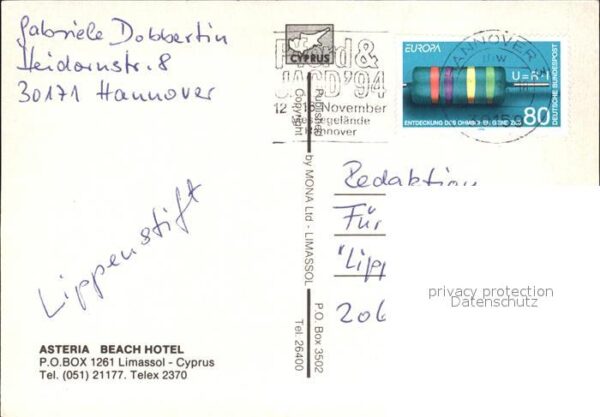 Gabriele Dobbertin
Heidornstr. 8
30171 Hannover
Lippenstift
ASTERIA BEACH HOTEL
P.O.BOX 1261 Limassol - Cyprus
Tel. (051) 21177. Telex 2370
CYPRUS
Pferd &
JAGD '94
12 November
Messegelände
Hannover
Published
Copyright
by MONA Ltd - LIMASSOL
P.O. Box 3502
Tel. 26400
EUROPA
U=R·I
ENTDECKUNG DES OHMSCHEN GESETZES
80
DEUTSCHE BUNDESPOST
HANNOVER
Redaktion
Für
"Lipp
20
privacy protection
Datenschutz